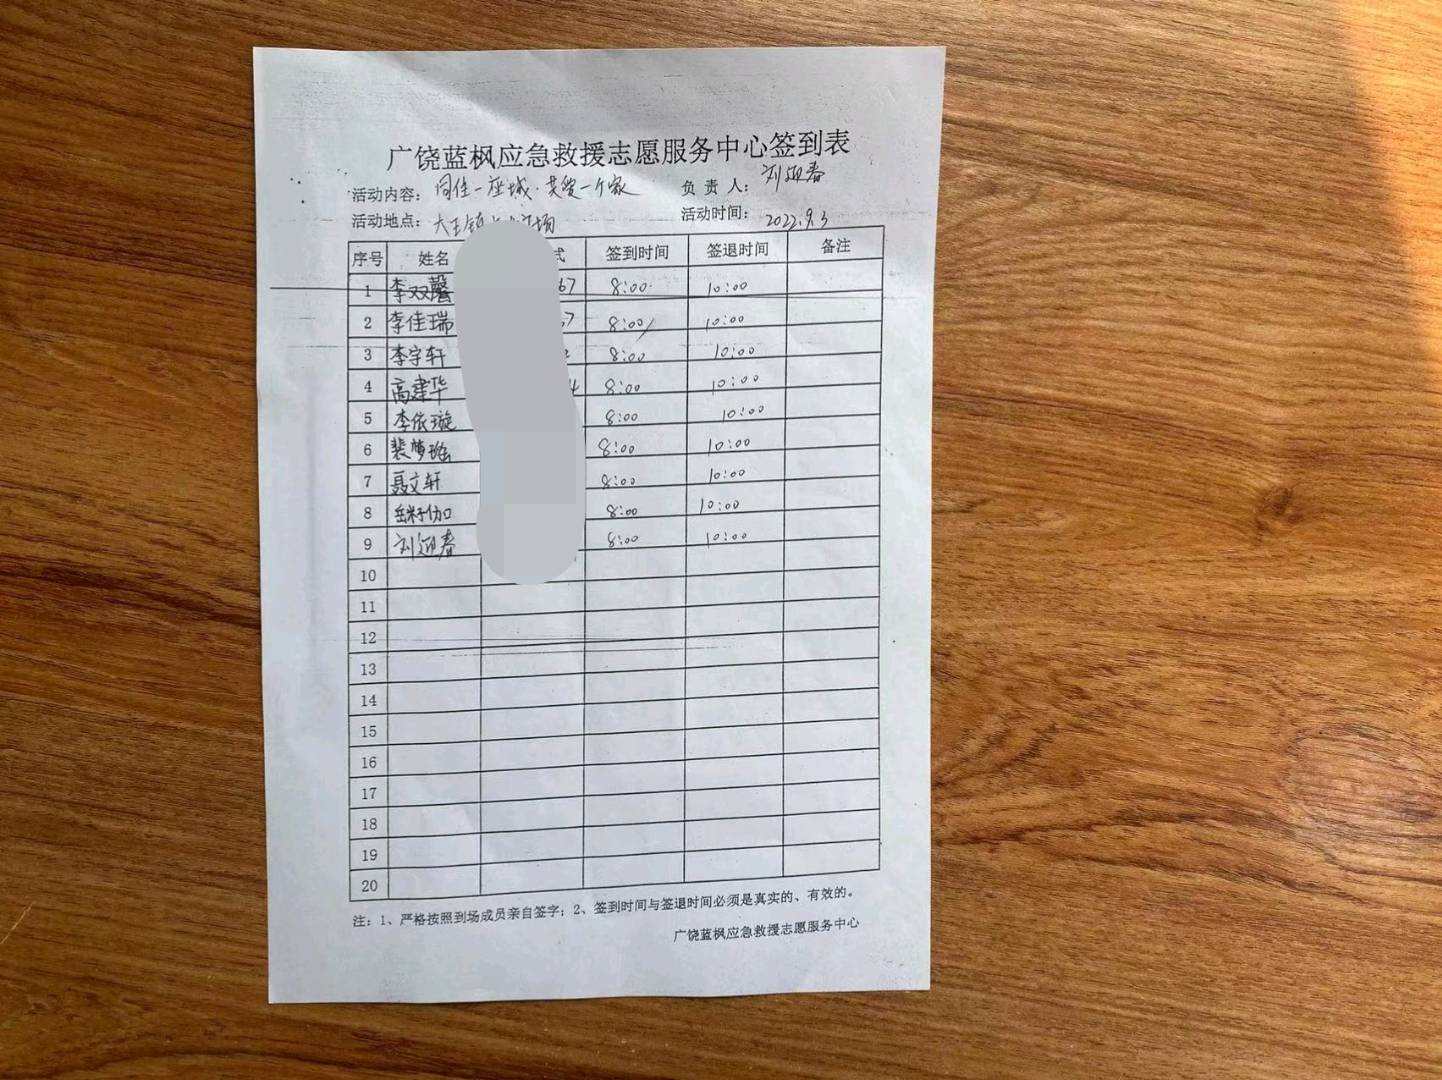 广饶蓝枫应急救援志愿服务中心签到表
活动内容：同住一座城·共爱一个家 负责人：刘迎春
活动地点：大王镇 场 活动时间：2022.9.3
序号 姓名 式 签到时间 签退时间 备注
1 李双馨 67 8:00 10:00
2 李佳瑞 57 8:00 10:00
3 李宇轩 8:00 10:00
4 高建华 4 8:00 10:00
5 李依璇 8:00 10:00
6 裴梦瑶 8:00 10:00
7 聂文轩 8:00 10:00
8 岳籽伽 8:00 10:00
9 刘迎春 8:00 10:00
10
11
12
13
14
15
16
17
18
19
20
注：1、严格按照到场成员亲自签字；2、签到时间与签退时间必须是真实的、有效的。
广饶蓝枫应急救援志愿服务中心